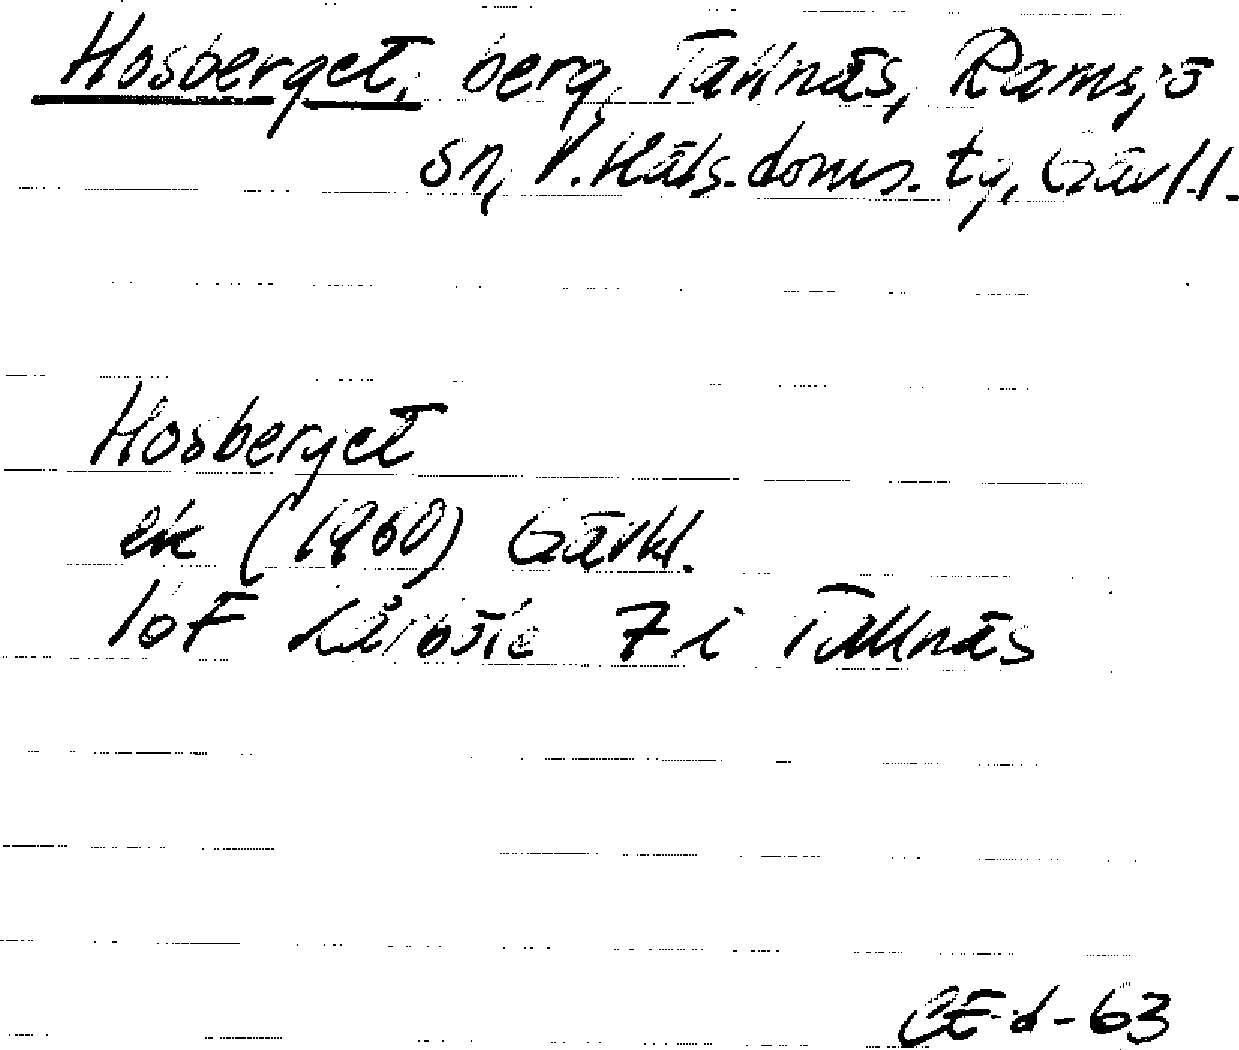 Hosberget, berg, Tallnäs, Ramsjö
sn, V. Häls. doms. tg, Gävl.l.
Hosberget
ek (1960) Gävkl.
Tallnäs
63